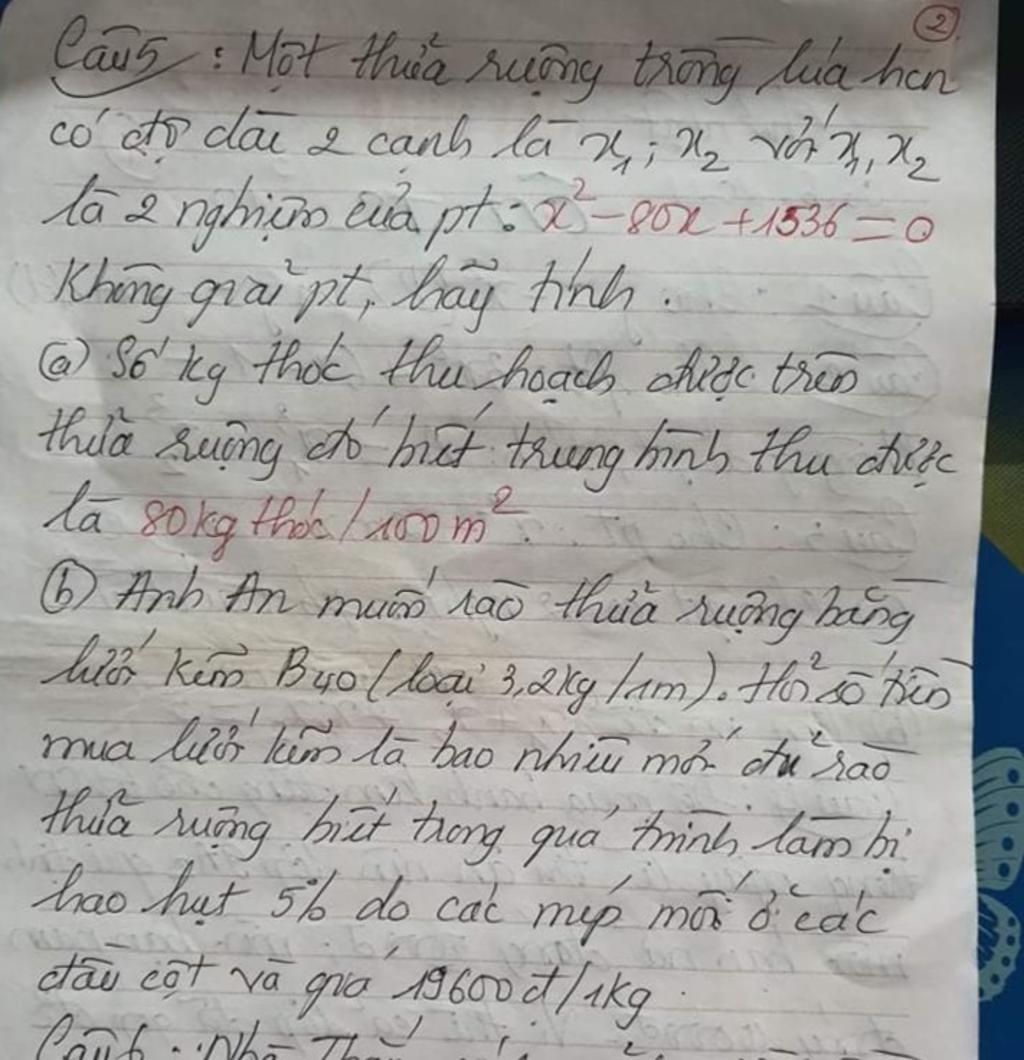 2
Câu 5 : Một thửa ruộng trồng lúa hcn
có độ dài 2 cạnh là x₁ ; x₂ với x₁, x₂
là 2 nghiệm của pt : x² - 80x + 1536 = 0
Không giải pt, hãy tính.
(a) Số kg thóc thu hoạch được trên
thửa ruộng đó biết trung bình thu được
là 80kg thóc / 100m²
(b) Anh An muốn rào thửa ruộng bằng
lưới kẽm B40 (loại 3,2kg/1m). Hỏi số tiền
mua lưới kẽm là bao nhiêu mới đủ rào
thửa ruộng biết trong quá trình làm bị
hao hụt 5% do các mép mối ở các
đầu cột và giá 19600đ/1kg.
Câu 6 :